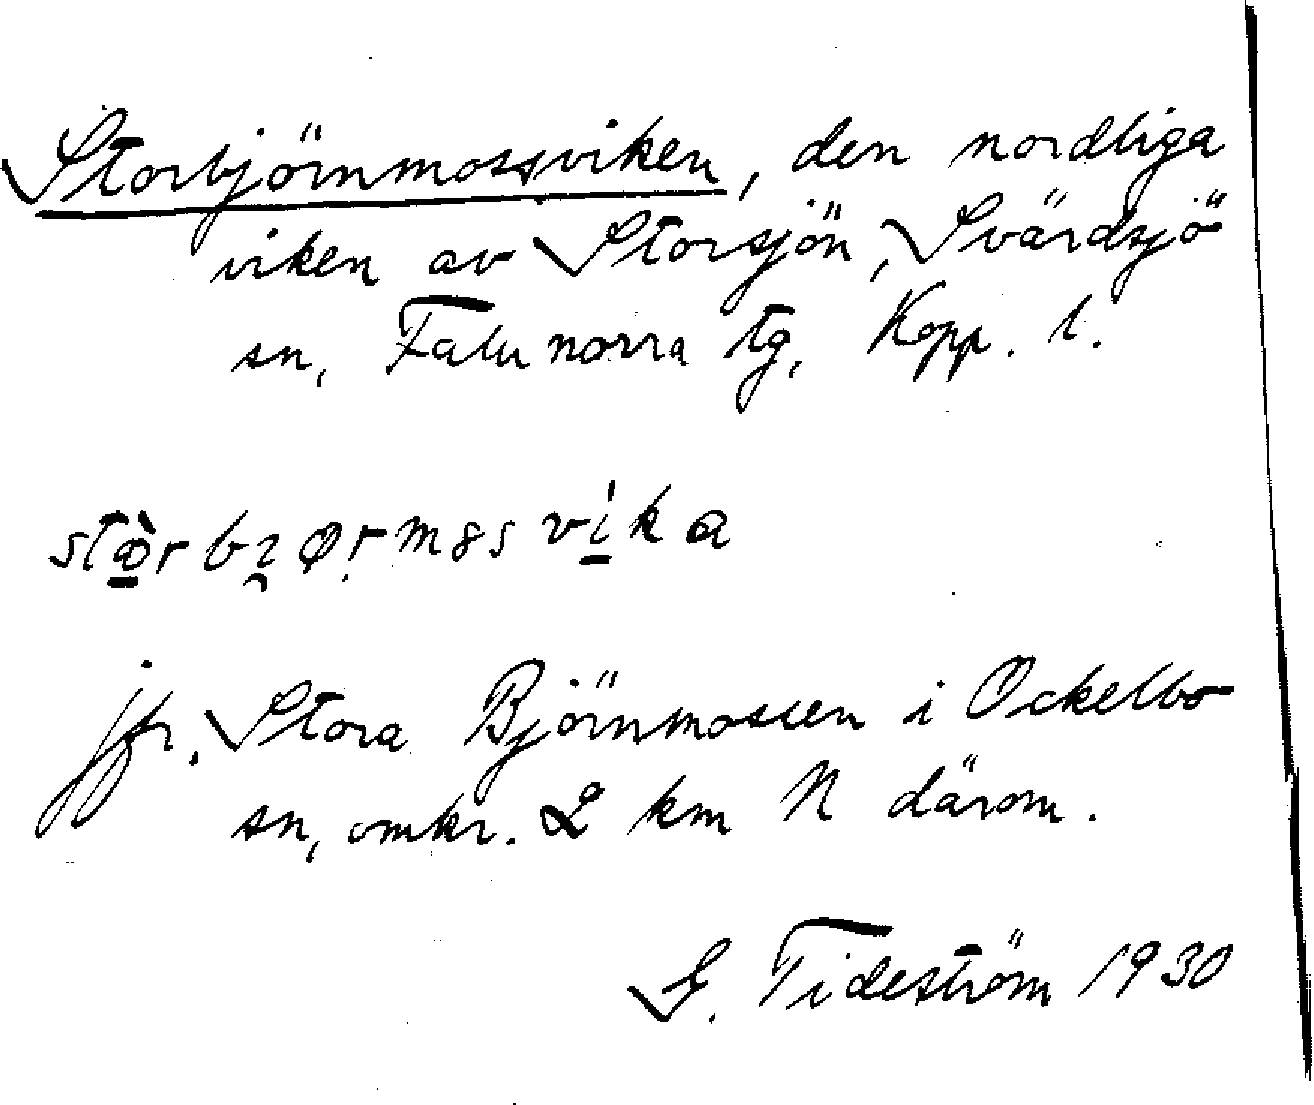 Storbjörnmossviken, den nordliga
viken av Storsjön, Svärdsjö
sn, Falu norra tg, Kopp. l.
jfr. Stora Björnmossen i Ockelbo
sn, omkr. 2 km N därom.
G. Tideström 1930